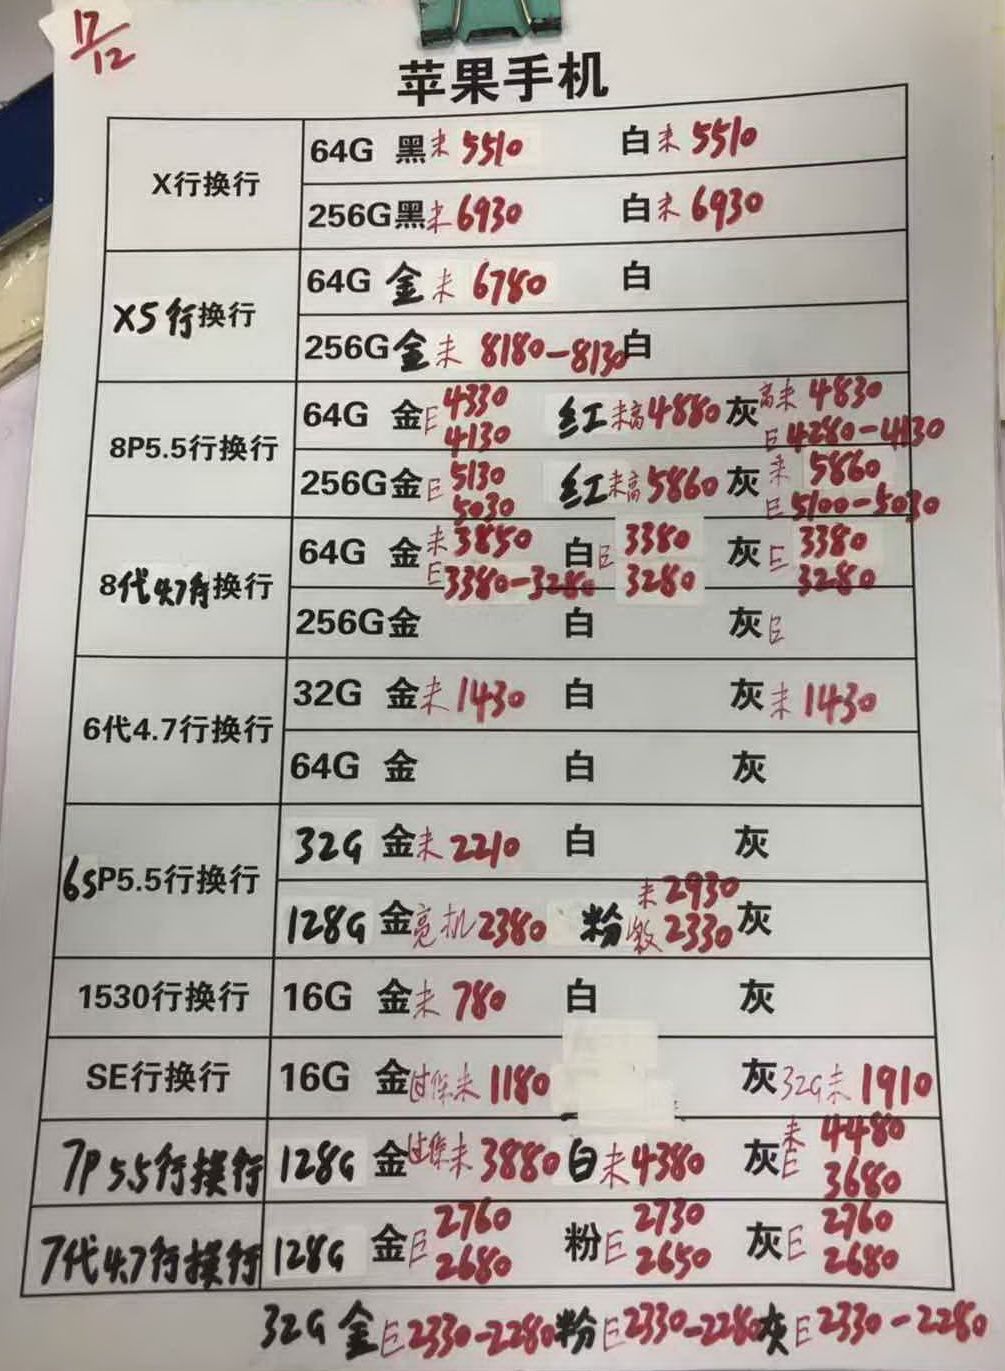 17/12
苹果手机
X行换行
64G 黑未5510 白未5510
256G黑未6930 白未6930
XS行换行
64G 金未6780 白
256G金未8180-8130白
8P5.5行换行
64G 金E4330 4130 红未高4880 灰高未4830 E4280-4130
256G金E5130 5030 红未高5860 灰未5860 E5100-5030
8代4.7行换行
64G 金未3850 E3380-3280 白E3380 3280 灰E3380 3280
256G金 白 灰E
6代4.7行换行
32G 金未1430 白 灰未1430
64G 金 白 灰
6SP5.5行换行
32G 金未2210 白 灰
128G 金亮机2380 粉未2930 激2330 灰
1530行换行
16G 金未780 白 灰
SE行换行
16G 金过保未1180 灰32G未1910
7P5.5行换行
128G 金过保未3880 白未4380 灰未4480 E3680
7代4.7行换行
128G 金E2760 2680 粉E2730 2650 灰E2760 2680
32G 金E2330-2280粉E2330-2280灰E2330-2280